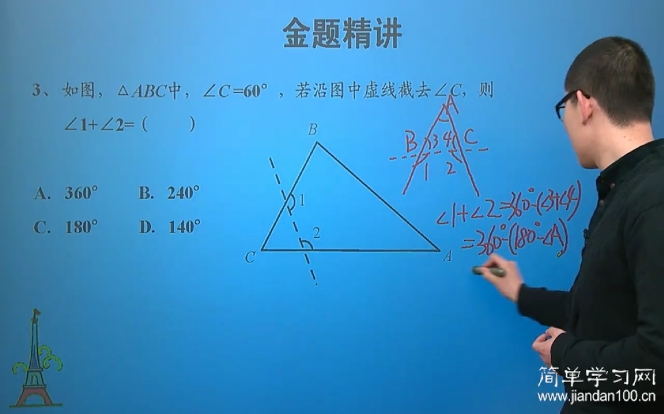 金题精讲
3、如图，△ABC中，∠C=60°，若沿图中虚线截去∠C，则
∠1+∠2=（　　）
A. 360°　B. 240°
C. 180°　D. 140°
B
1
2
C
A
A
B 3 4 C
1 2
∠1+∠2=360°-(∠3+∠4)
=360°-(180°-∠A)
简单学习网
www.jiandan100.cn